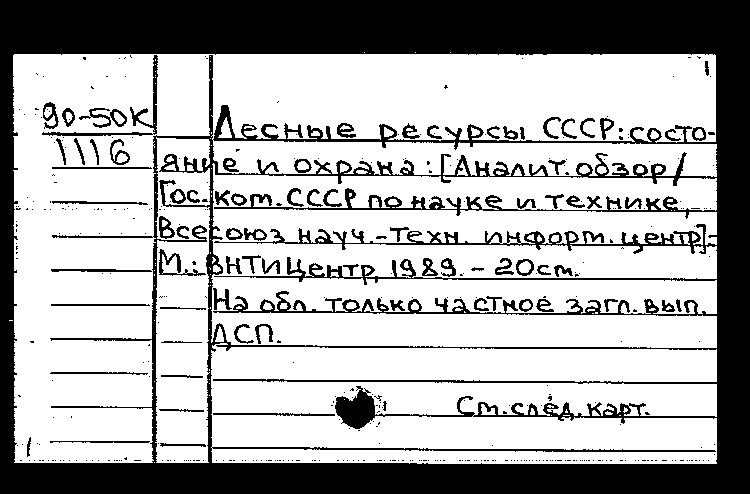 90-50К
1116
Лесные ресурсы СССР: состо-
яние и охрана: [Аналит. обзор /
Гос. ком. СССР по науке и технике,
Всесоюз науч.-техн. информ. центр].-
М.: ВНТИЦентр, 1989. - 20см.
На обл. только частное загл. вып.
ДСП.
См. след. карт.